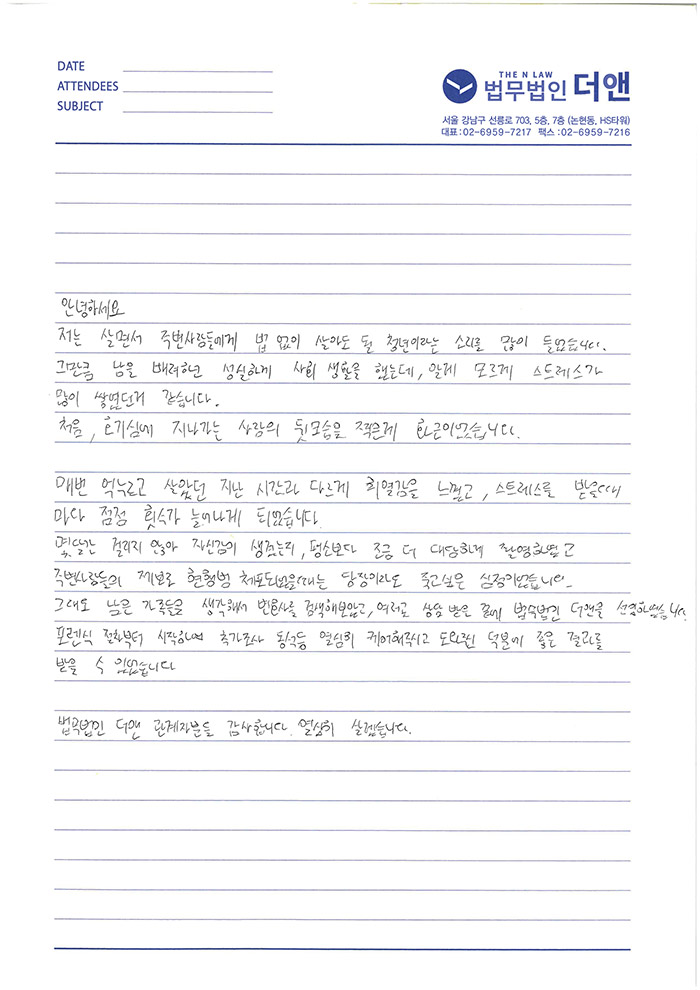 DATE
ATTENDEES
SUBJECT
THE N LAW
법무법인 더앤
서울 강남구 선릉로 703, 5층, 7층 (논현동, HS타워)
대표 : 02-6959-7217 팩스 : 02-6959-7216
안녕하세요
저는 살면서 주변사람들에게 법 없이 살아도 될 청년이라는 소리를 많이 들었습니다.
그만큼 남을 배려하면 성실하게 사회 생활을 했는데, 알게 모르게 스트레스가
많이 쌓였던거 같습니다.
처음, 호기심에 지나가는 사람의 뒷모습을 찍은게 화근이었습니다.
매번 억누르고 살았던 지난 시간과 다르게 희열감을 느꼈고, 스트레스를 받을때
마다 점점 횟수가 늘어나게 되었습니다.
몇달간 걸리지 않아 자신감이 생겼는지, 평소보다 조금 더 대담하게 촬영하였고
주변사람들의 제보로 현행범 체포되었을때는 당장이라도 죽고싶은 심정이었습니다.
그래도 남은 가족들을 생각해서 변호사를 검색해보았고, 여러곳 상담 받은 끝에 법무법인 더앤을 선임하였습니다.
포렌식 절차부터 시작하여 추가조사 동석등 열심히 케어해주시고 도와주신 덕분에 좋은 결과를
받을 수 있었습니다
법무법인 더앤 관계자분들 감사합니다. 열심히 살겠습니다.